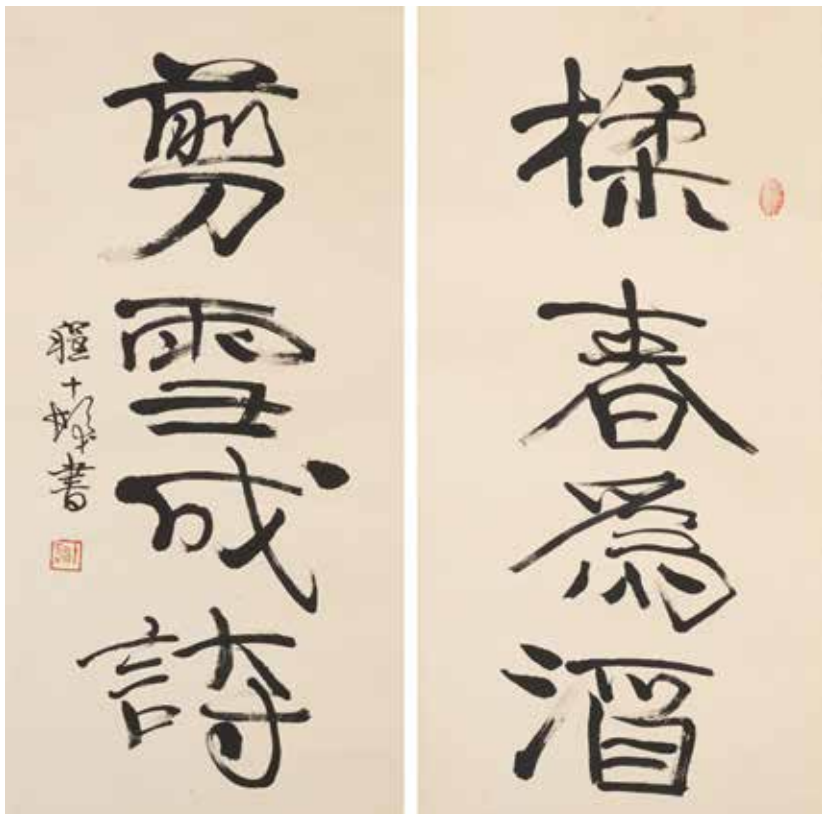 揉春爲酒
剪雪成詩
程十髮書